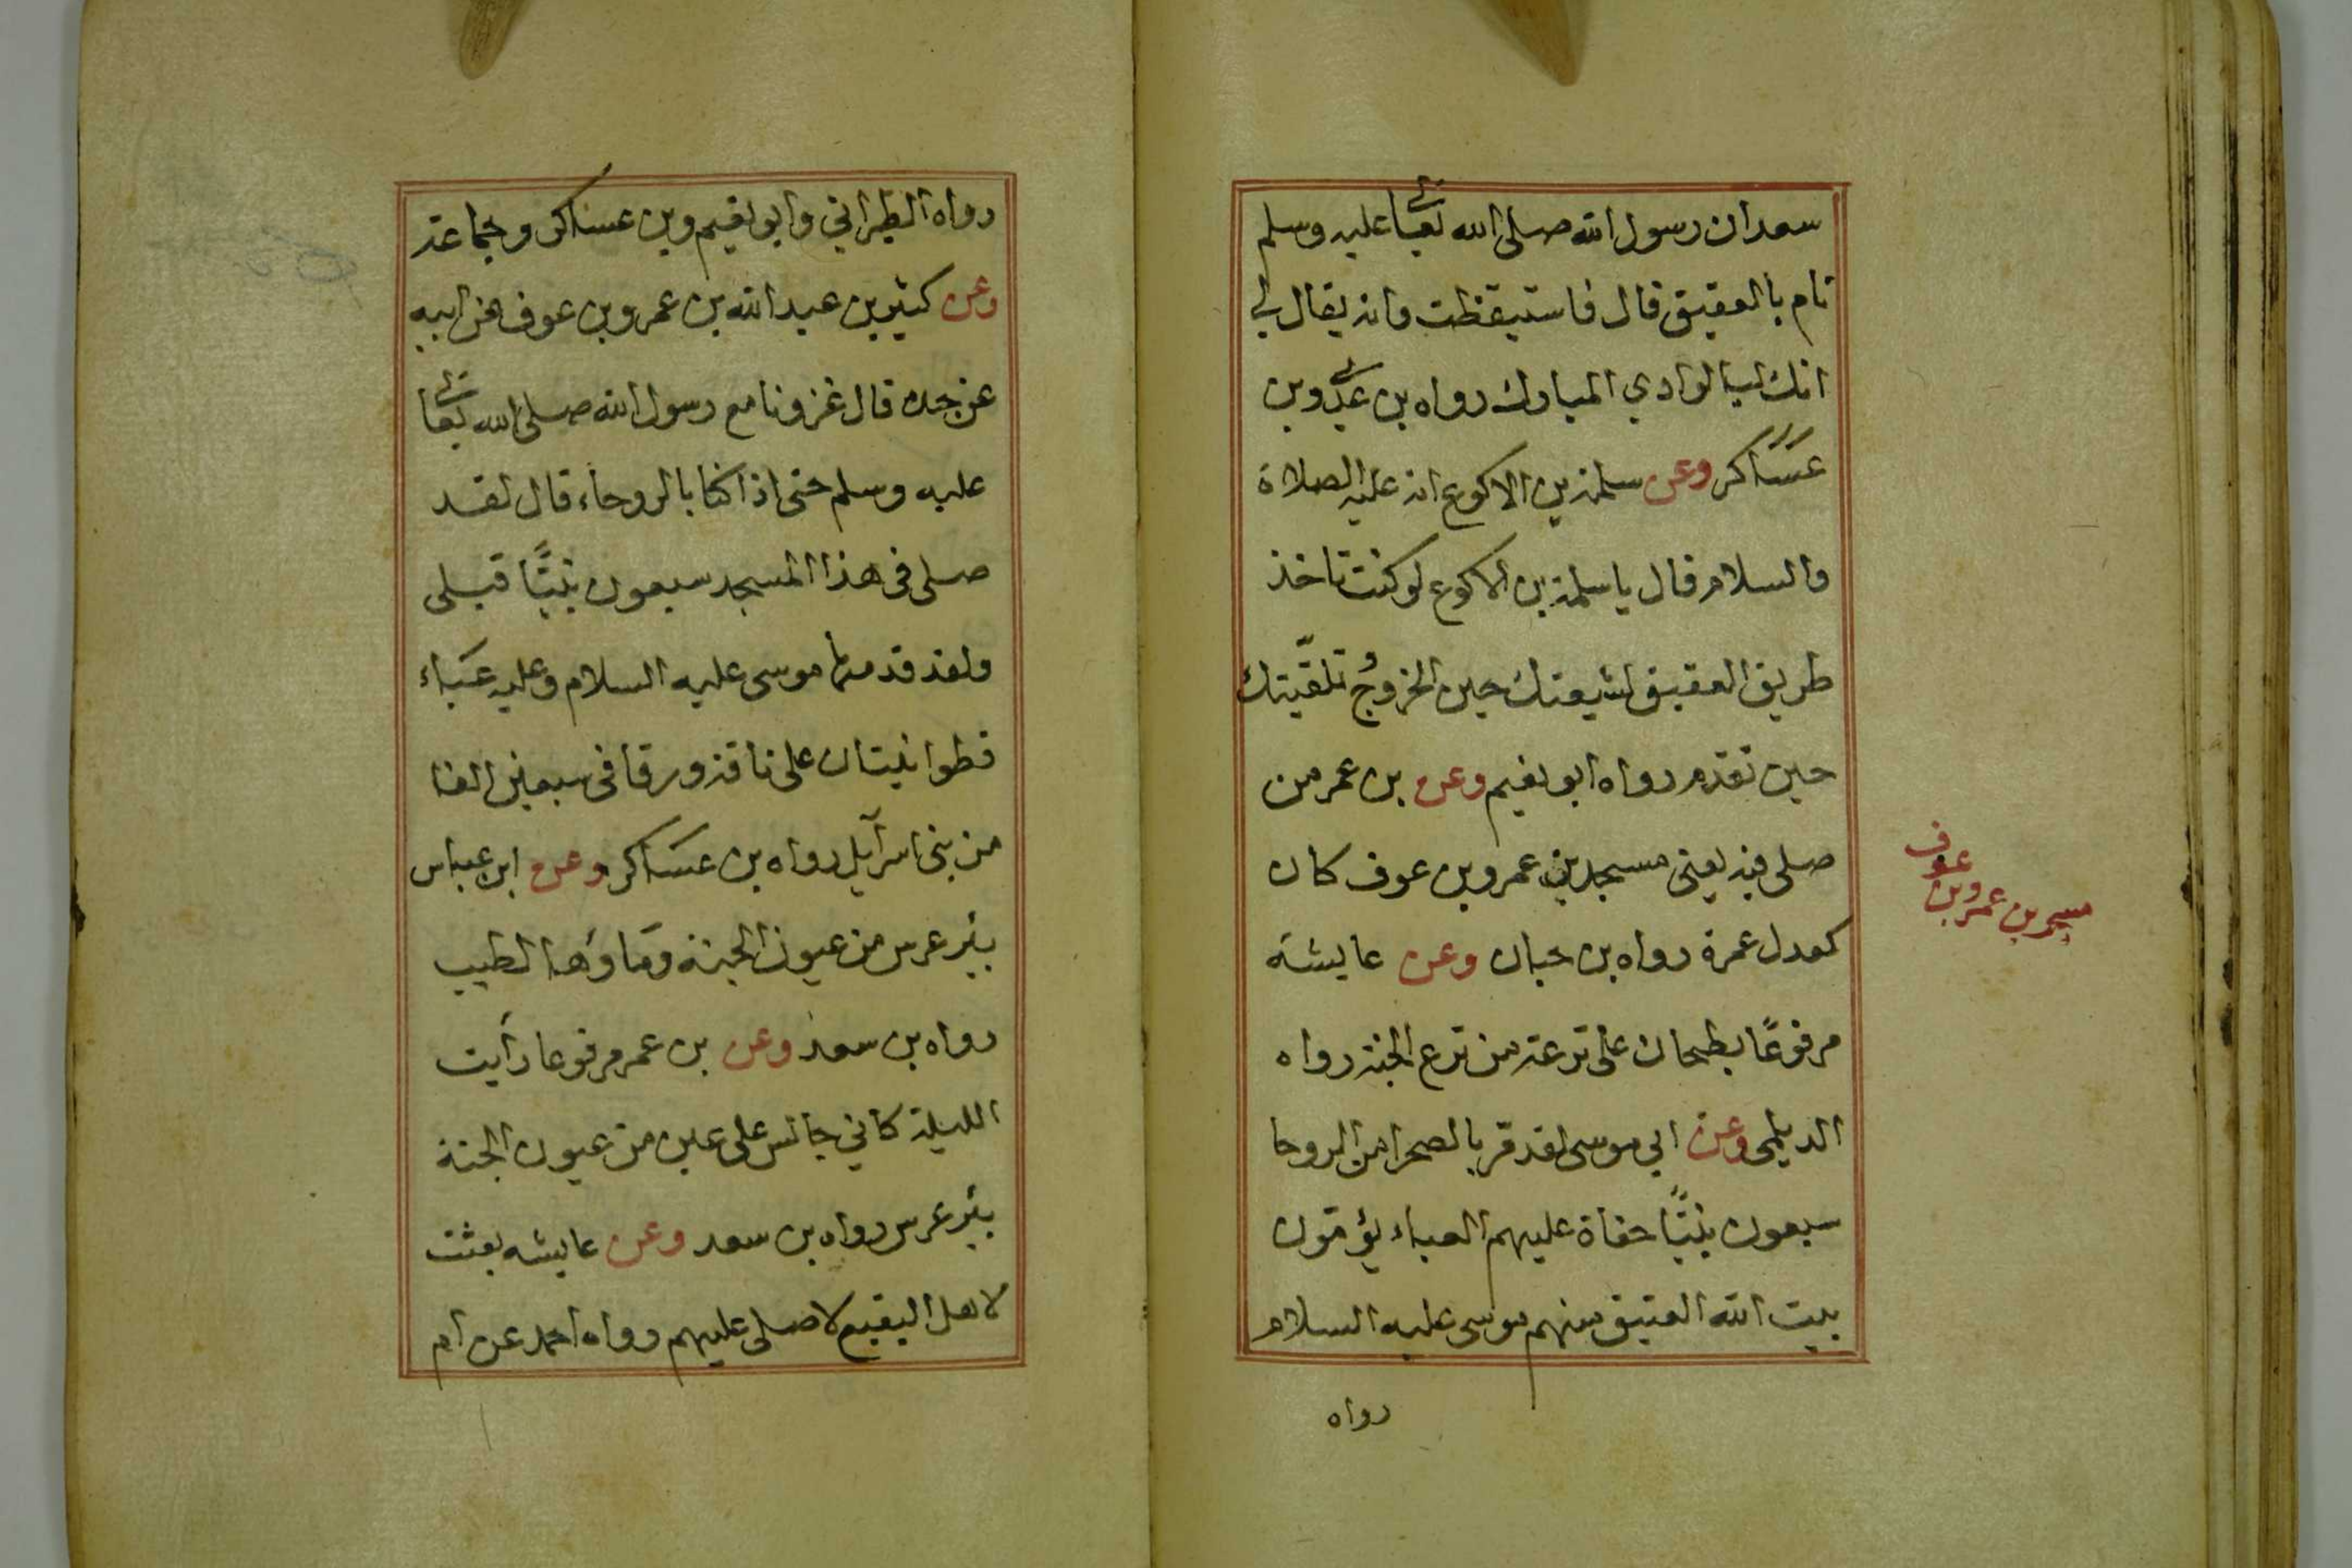 سعد ان رسول الله صلى الله تعالى عليه وسلم
نام بالعقيق قال فاستيقظت وانه يقال لي
انك لبالوادي المبارك رواه بن عدي وبن
عساكر وعن سلمة بن الاكوع انه عليه الصلاة
والسلام قال يا سلمة بن الاكوع لو كنت تاخذ
طريق العقيق لشيعتك حين الخروج وتلقّيتك
حين تقدم رواه ابو نعيم وعن بن عمر من
صلى فيه يعني مسجد بني عمرو بن عوف كان
كعدل عمرة رواه بن حبان وعن عايشة
مرفوعًا بطحان على ترعة من ترع الجنة رواه
الديلمي وعن ابي موسى لقد مر بالصخرا من الروحا
سبعون نبيًّا حفاة عليهم العباء يؤمون
بيت الله العتيق منهم موسى عليه السلام
رواه
مسجد بن عمرو بن
عوف
رواه الطبراني وابو نعيم وبن عساكر وجماعة
وعن كثير بن عبد الله بن عمرو بن عوف عن ابيه
عن جده قال غزونا مع رسول الله صلى الله تعالى
عليه وسلم حتى اذا كنا بالروحاء قال لقد
صلى في هذا المسجد سبعون نبيًّا قبلي
ولقد قدمها موسى عليه السلام وعليه عباء
قطوانيتان على ناقة ورقا في سبعين الفا
من بني اسرآيل رواه بن عساكر وعن ابن عباس
بئر غرس من عيون الجنة وماؤها الطيب
رواه بن سعد وعن بن عمر مرفوعا رأيت
الليلة كاني جالس على عين من عيون الجنة
بئر غرس رواه بن سعد وعن عايشه بعثت
لاهل البقيع لاصلى عليهم رواه احمد عن ام